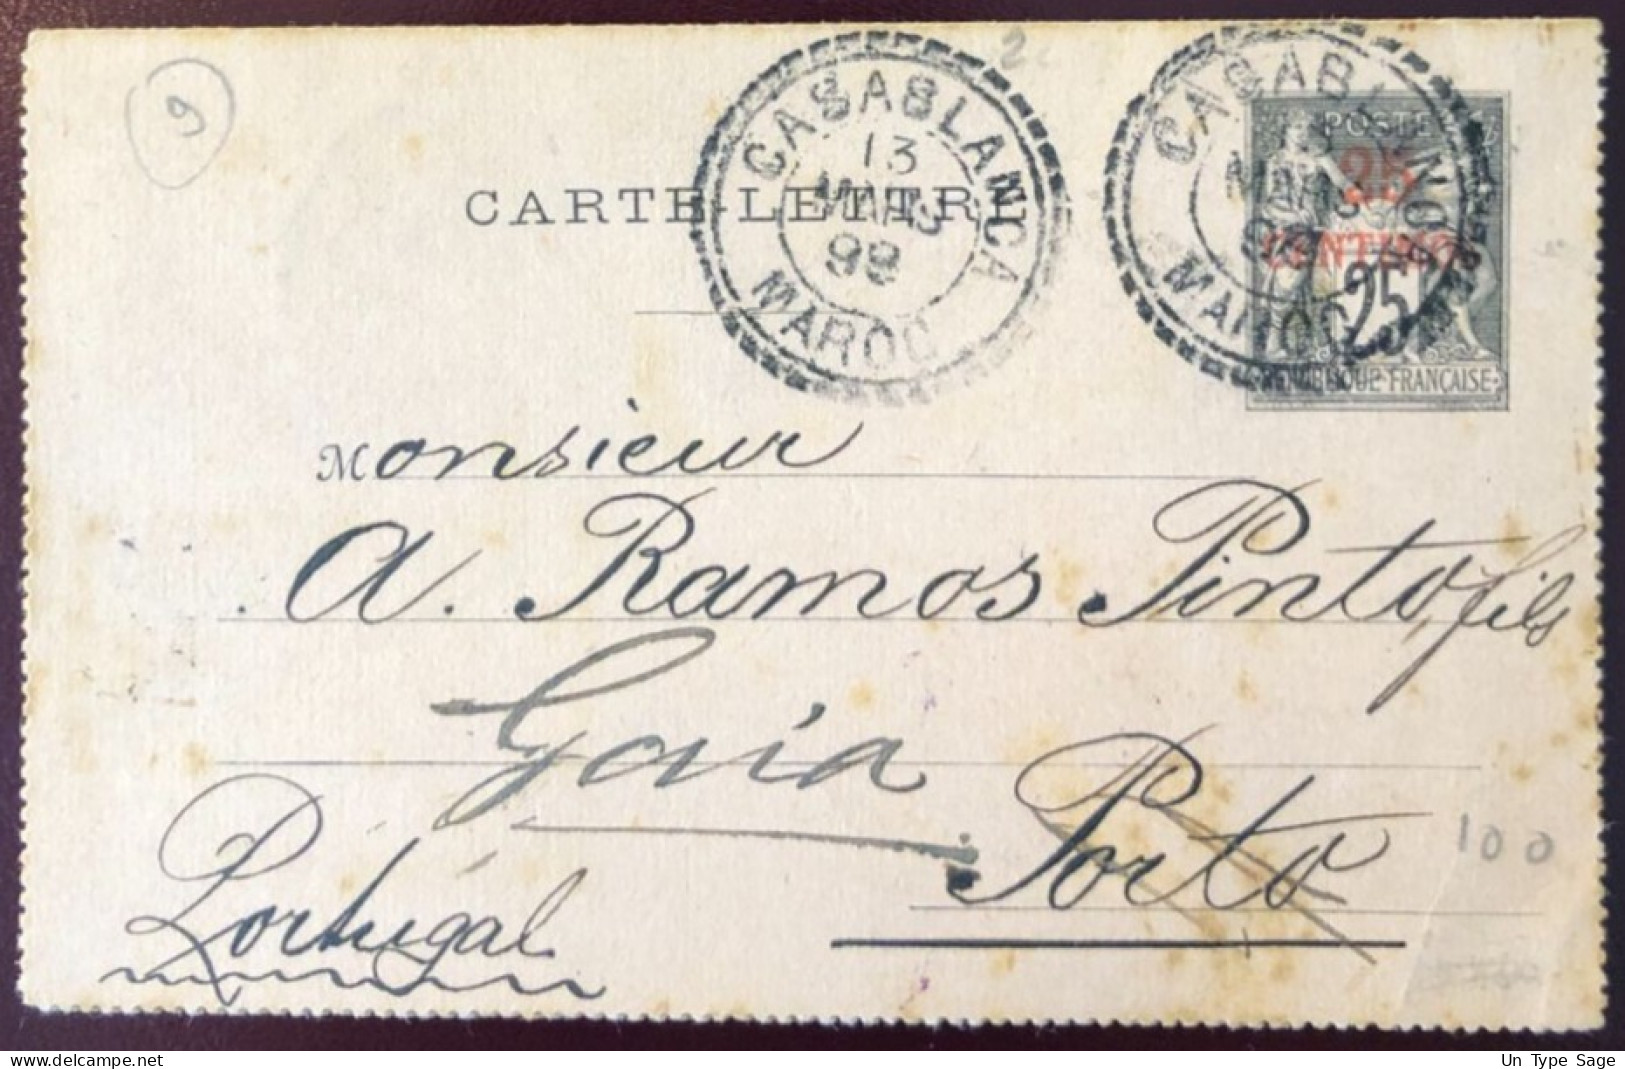 9
CASABLANCA
13
MARS
99
MAROC
CASABLANCA
MARS
99
MAROC
POSTE
25
CENTIMOS
25
REPUBLIQUE FRANÇAISE
CARTE-LETTRE
Monsieur
A. Ramos Pinto, fils
Gaia
Porto
Portugal
100
Un Type Sage